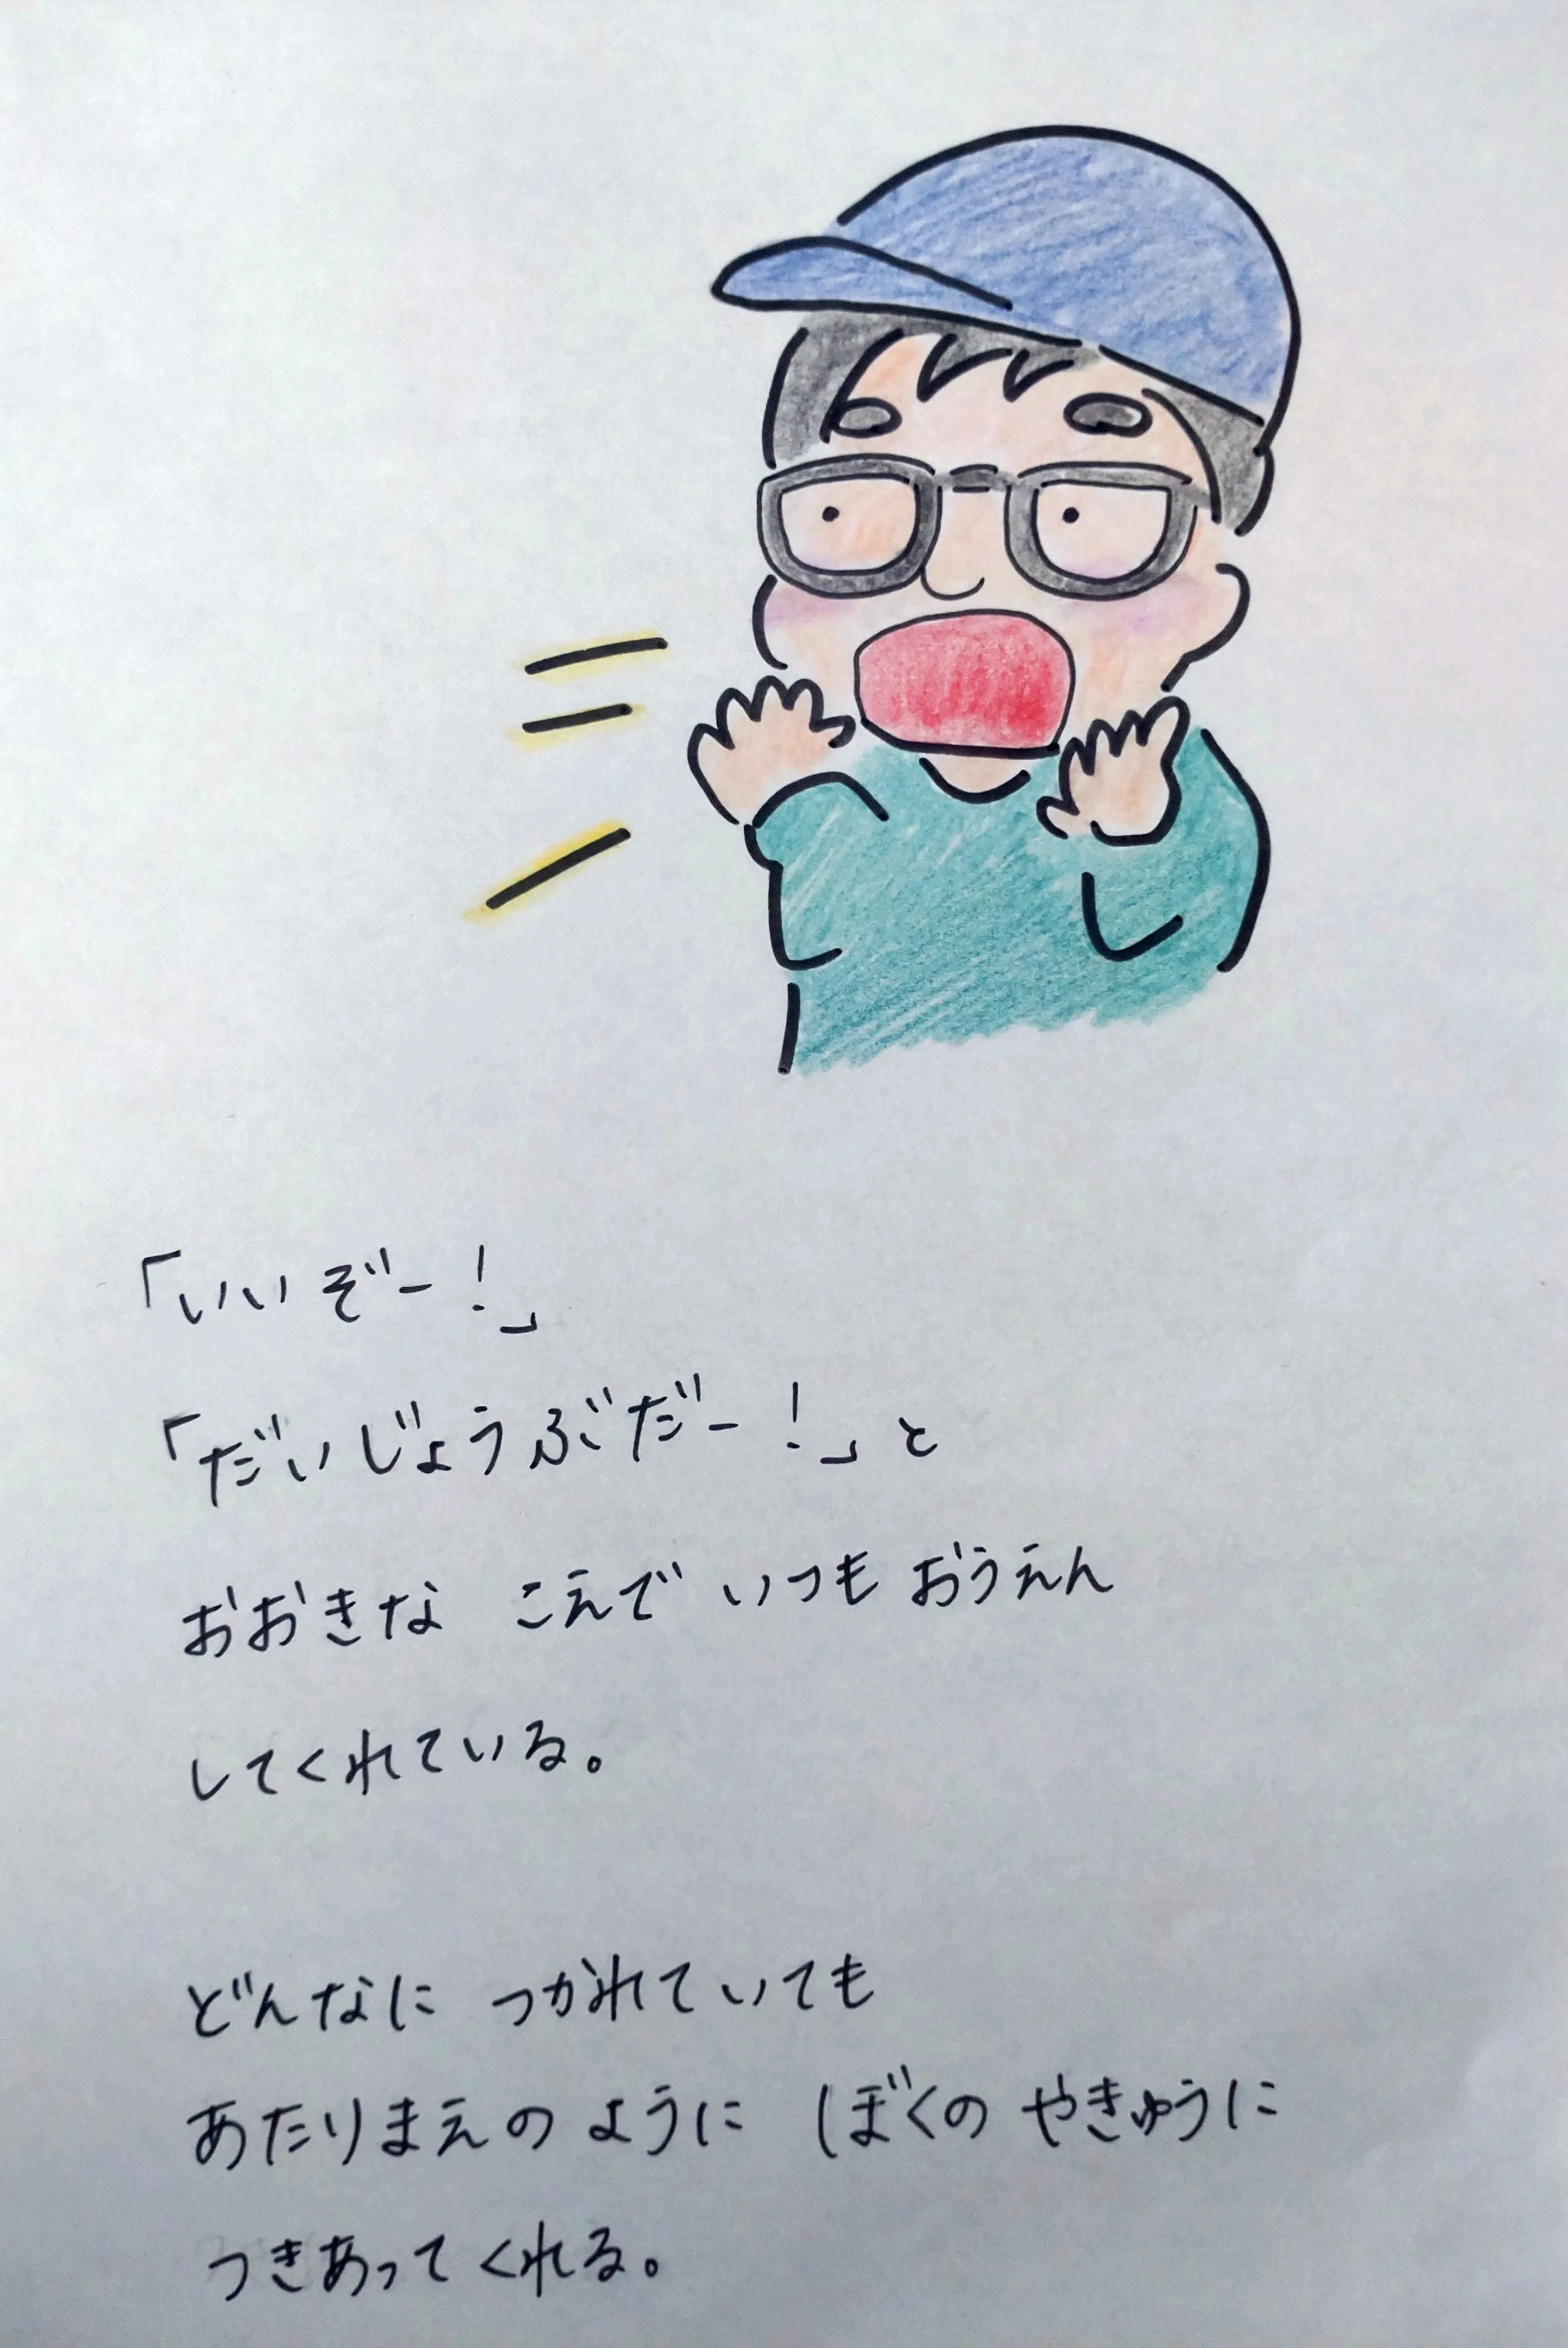 「いいぞー！」
「だいじょうぶだー！」と
おおきな こえで いつも おうえん
してくれている。
どんなに つかれていても
あたりまえのように ぼくの やきゅうに
つきあってくれる。